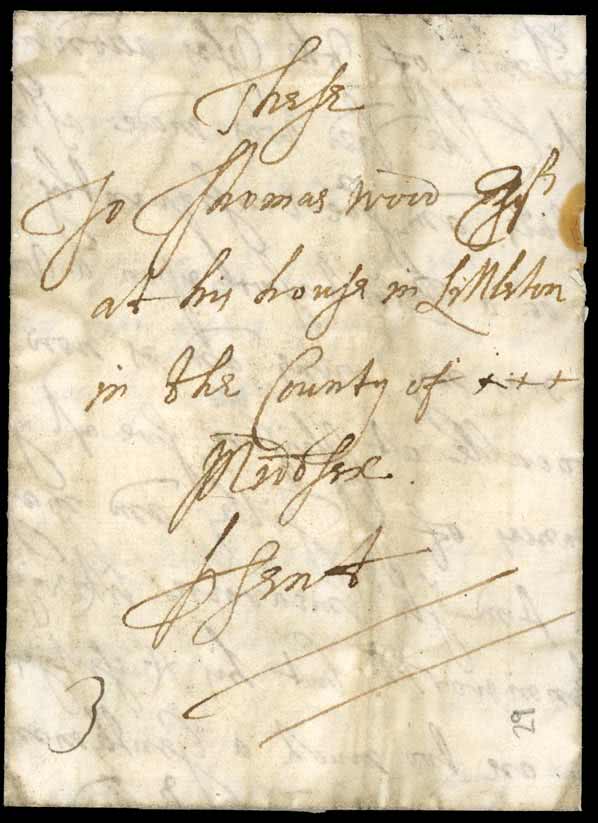 These
To Thomas Wood Esqr.
at his house in Littleton
in the County of +++
Middsex.
psent
3
29